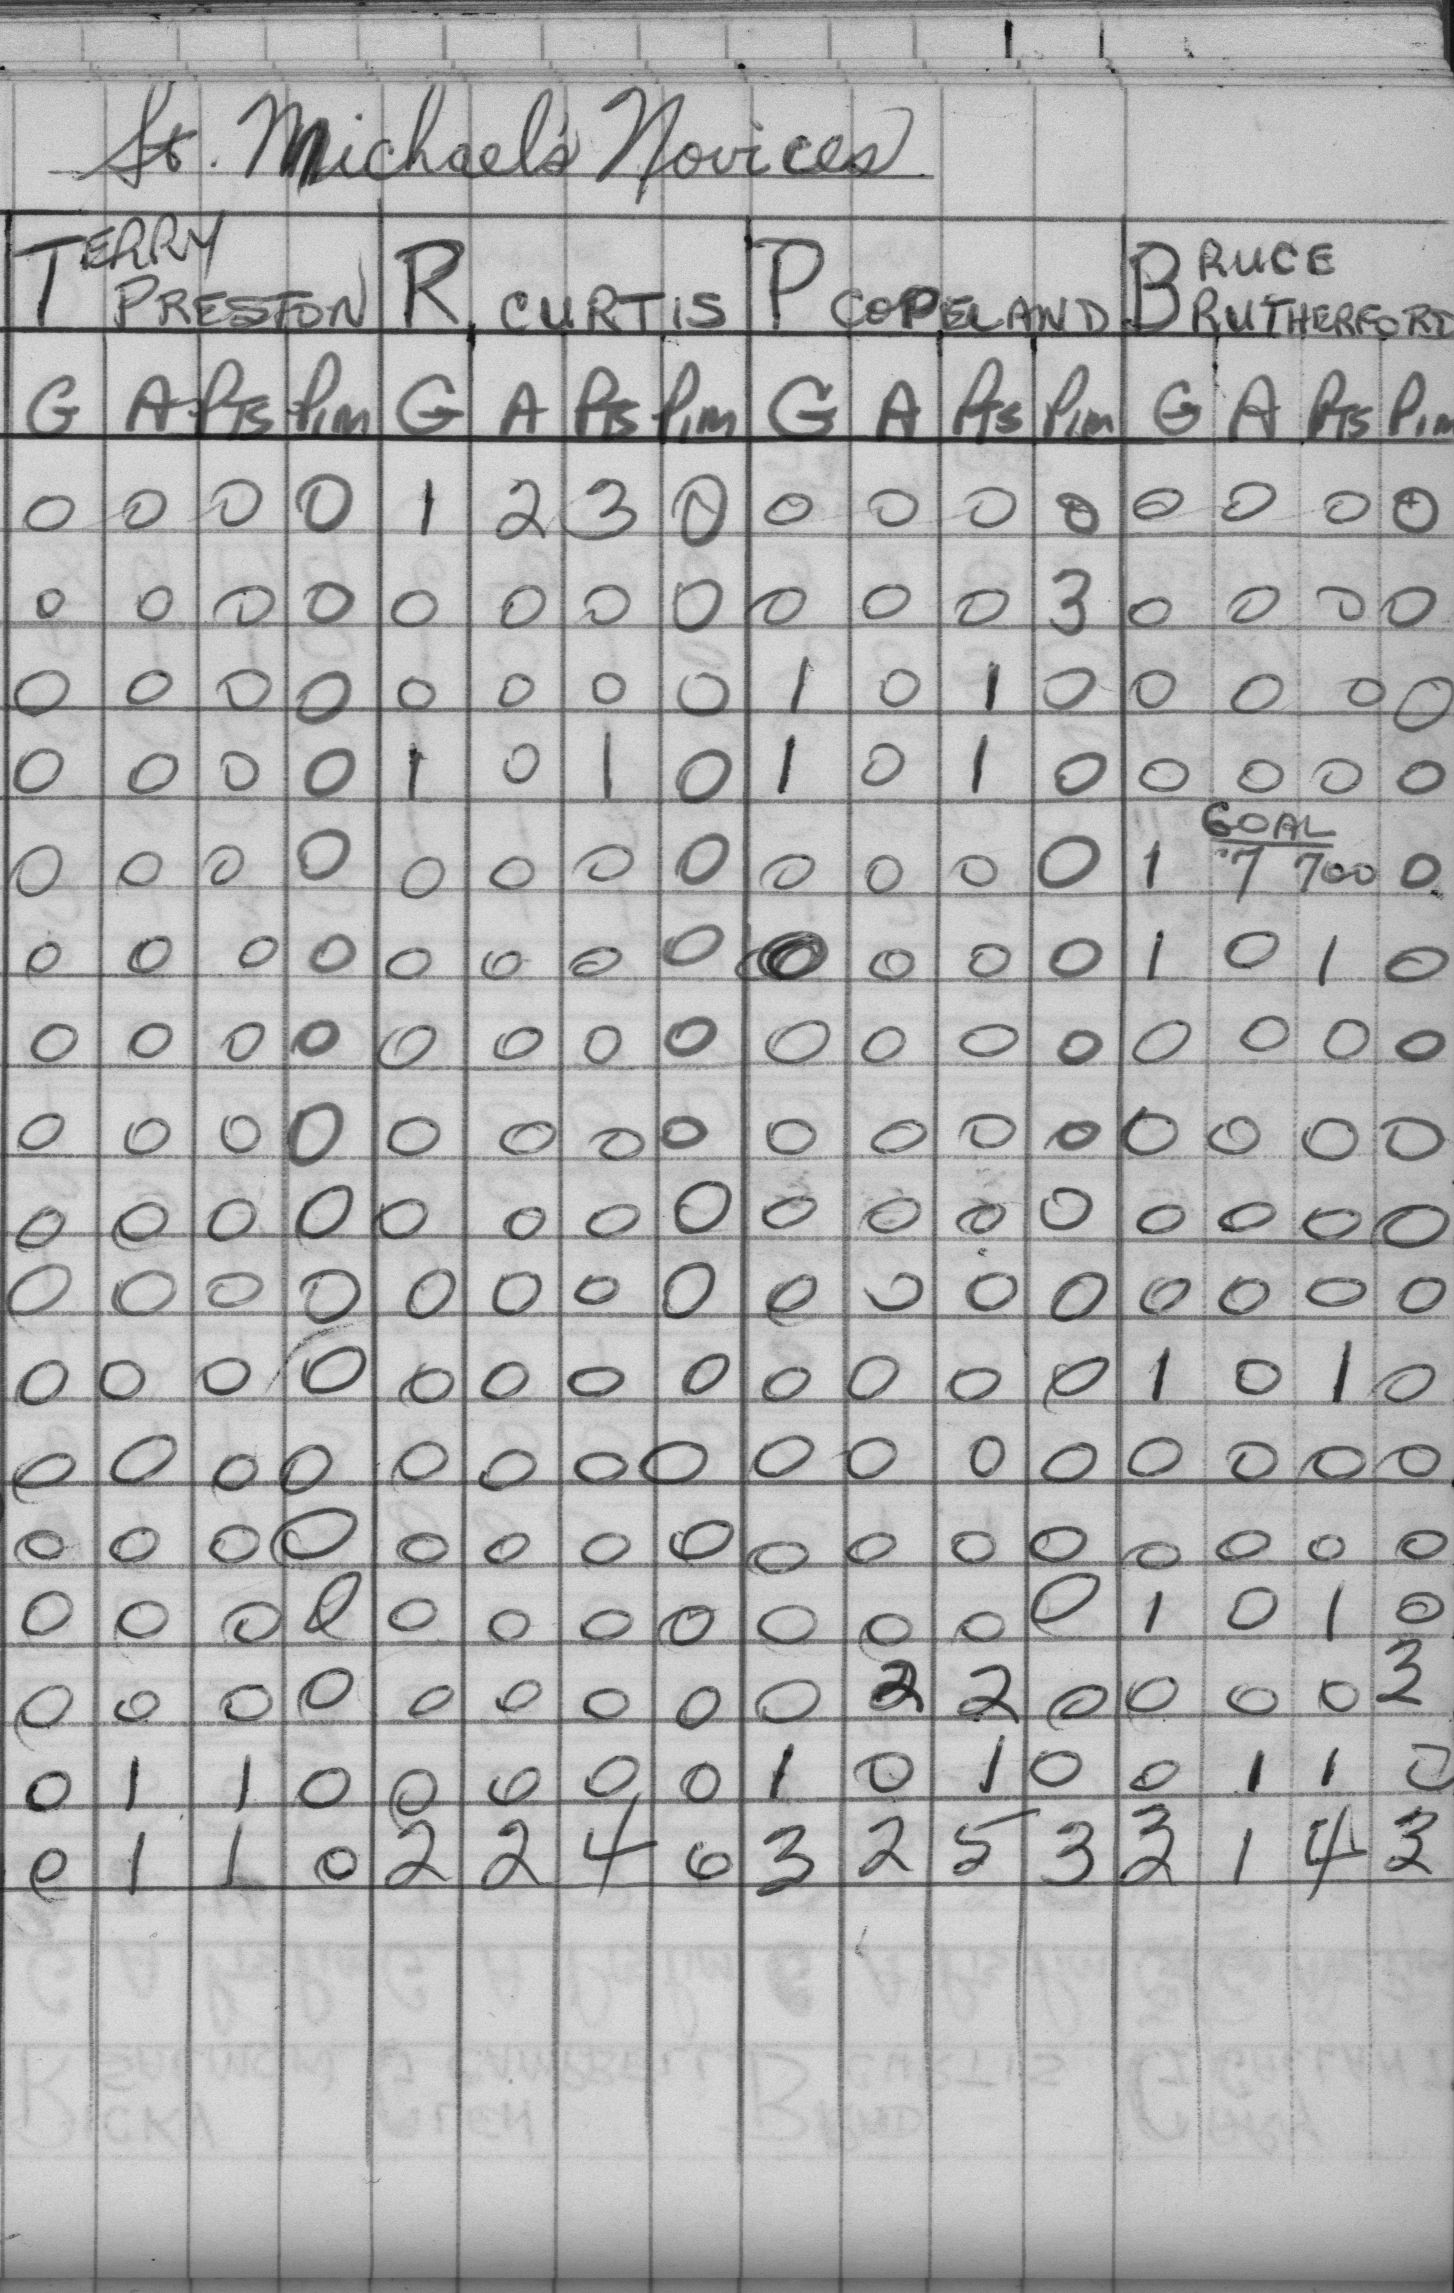 St. Michael's Novices
TERRY PRESTON R. CURTIS P COPELAND BRUCE RUTHERFORD
G A Pts Pim G A Pts Pim G A Pts Pim G A Pts Pim
0 0 0 0 1 2 3 0 0 0 0 0 0 0 0 0
0 0 0 0 0 0 0 0 0 0 0 3 0 0 0 0
0 0 0 0 0 0 0 0 1 0 1 0 0 0 0 0
0 0 0 0 1 0 1 0 1 0 1 0 0 0 0 0
GOAL
0 0 0 0 0 0 0 0 0 0 0 0 1 7 700 0
0 0 0 0 0 0 0 0 0 0 0 0 1 0 1 0
0 0 0 0 0 0 0 0 0 0 0 0 0 0 0 0
0 0 0 0 0 0 0 0 0 0 0 0 0 0 0 0
0 0 0 0 0 0 0 0 0 0 0 0 0 0 0 0
0 0 0 0 0 0 0 0 0 0 0 0 0 0 0 0
0 0 0 0 0 0 0 0 0 0 0 0 1 0 1 0
0 0 0 0 0 0 0 0 0 0 0 0 0 0 0 0
0 0 0 0 0 0 0 0 0 0 0 0 0 0 0 0
0 0 0 0 0 0 0 0 0 0 0 0 1 0 1 0
0 0 0 0 0 0 0 0 0 2 2 0 0 0 0 3
0 1 1 0 0 0 0 0 1 0 1 0 0 1 1 0
0 1 1 0 2 2 4 0 3 2 5 3 3 1 4 3